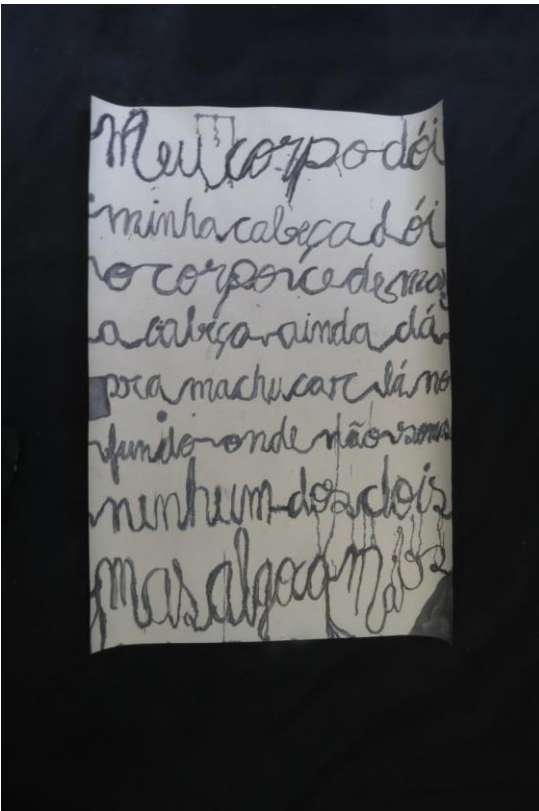 Meu corpo dói
minha cabeça dói
o corpo
a cabeça ainda dá
pra machucar lá no
fundo onde não somos
nenhum dos dois
mas algo a mais